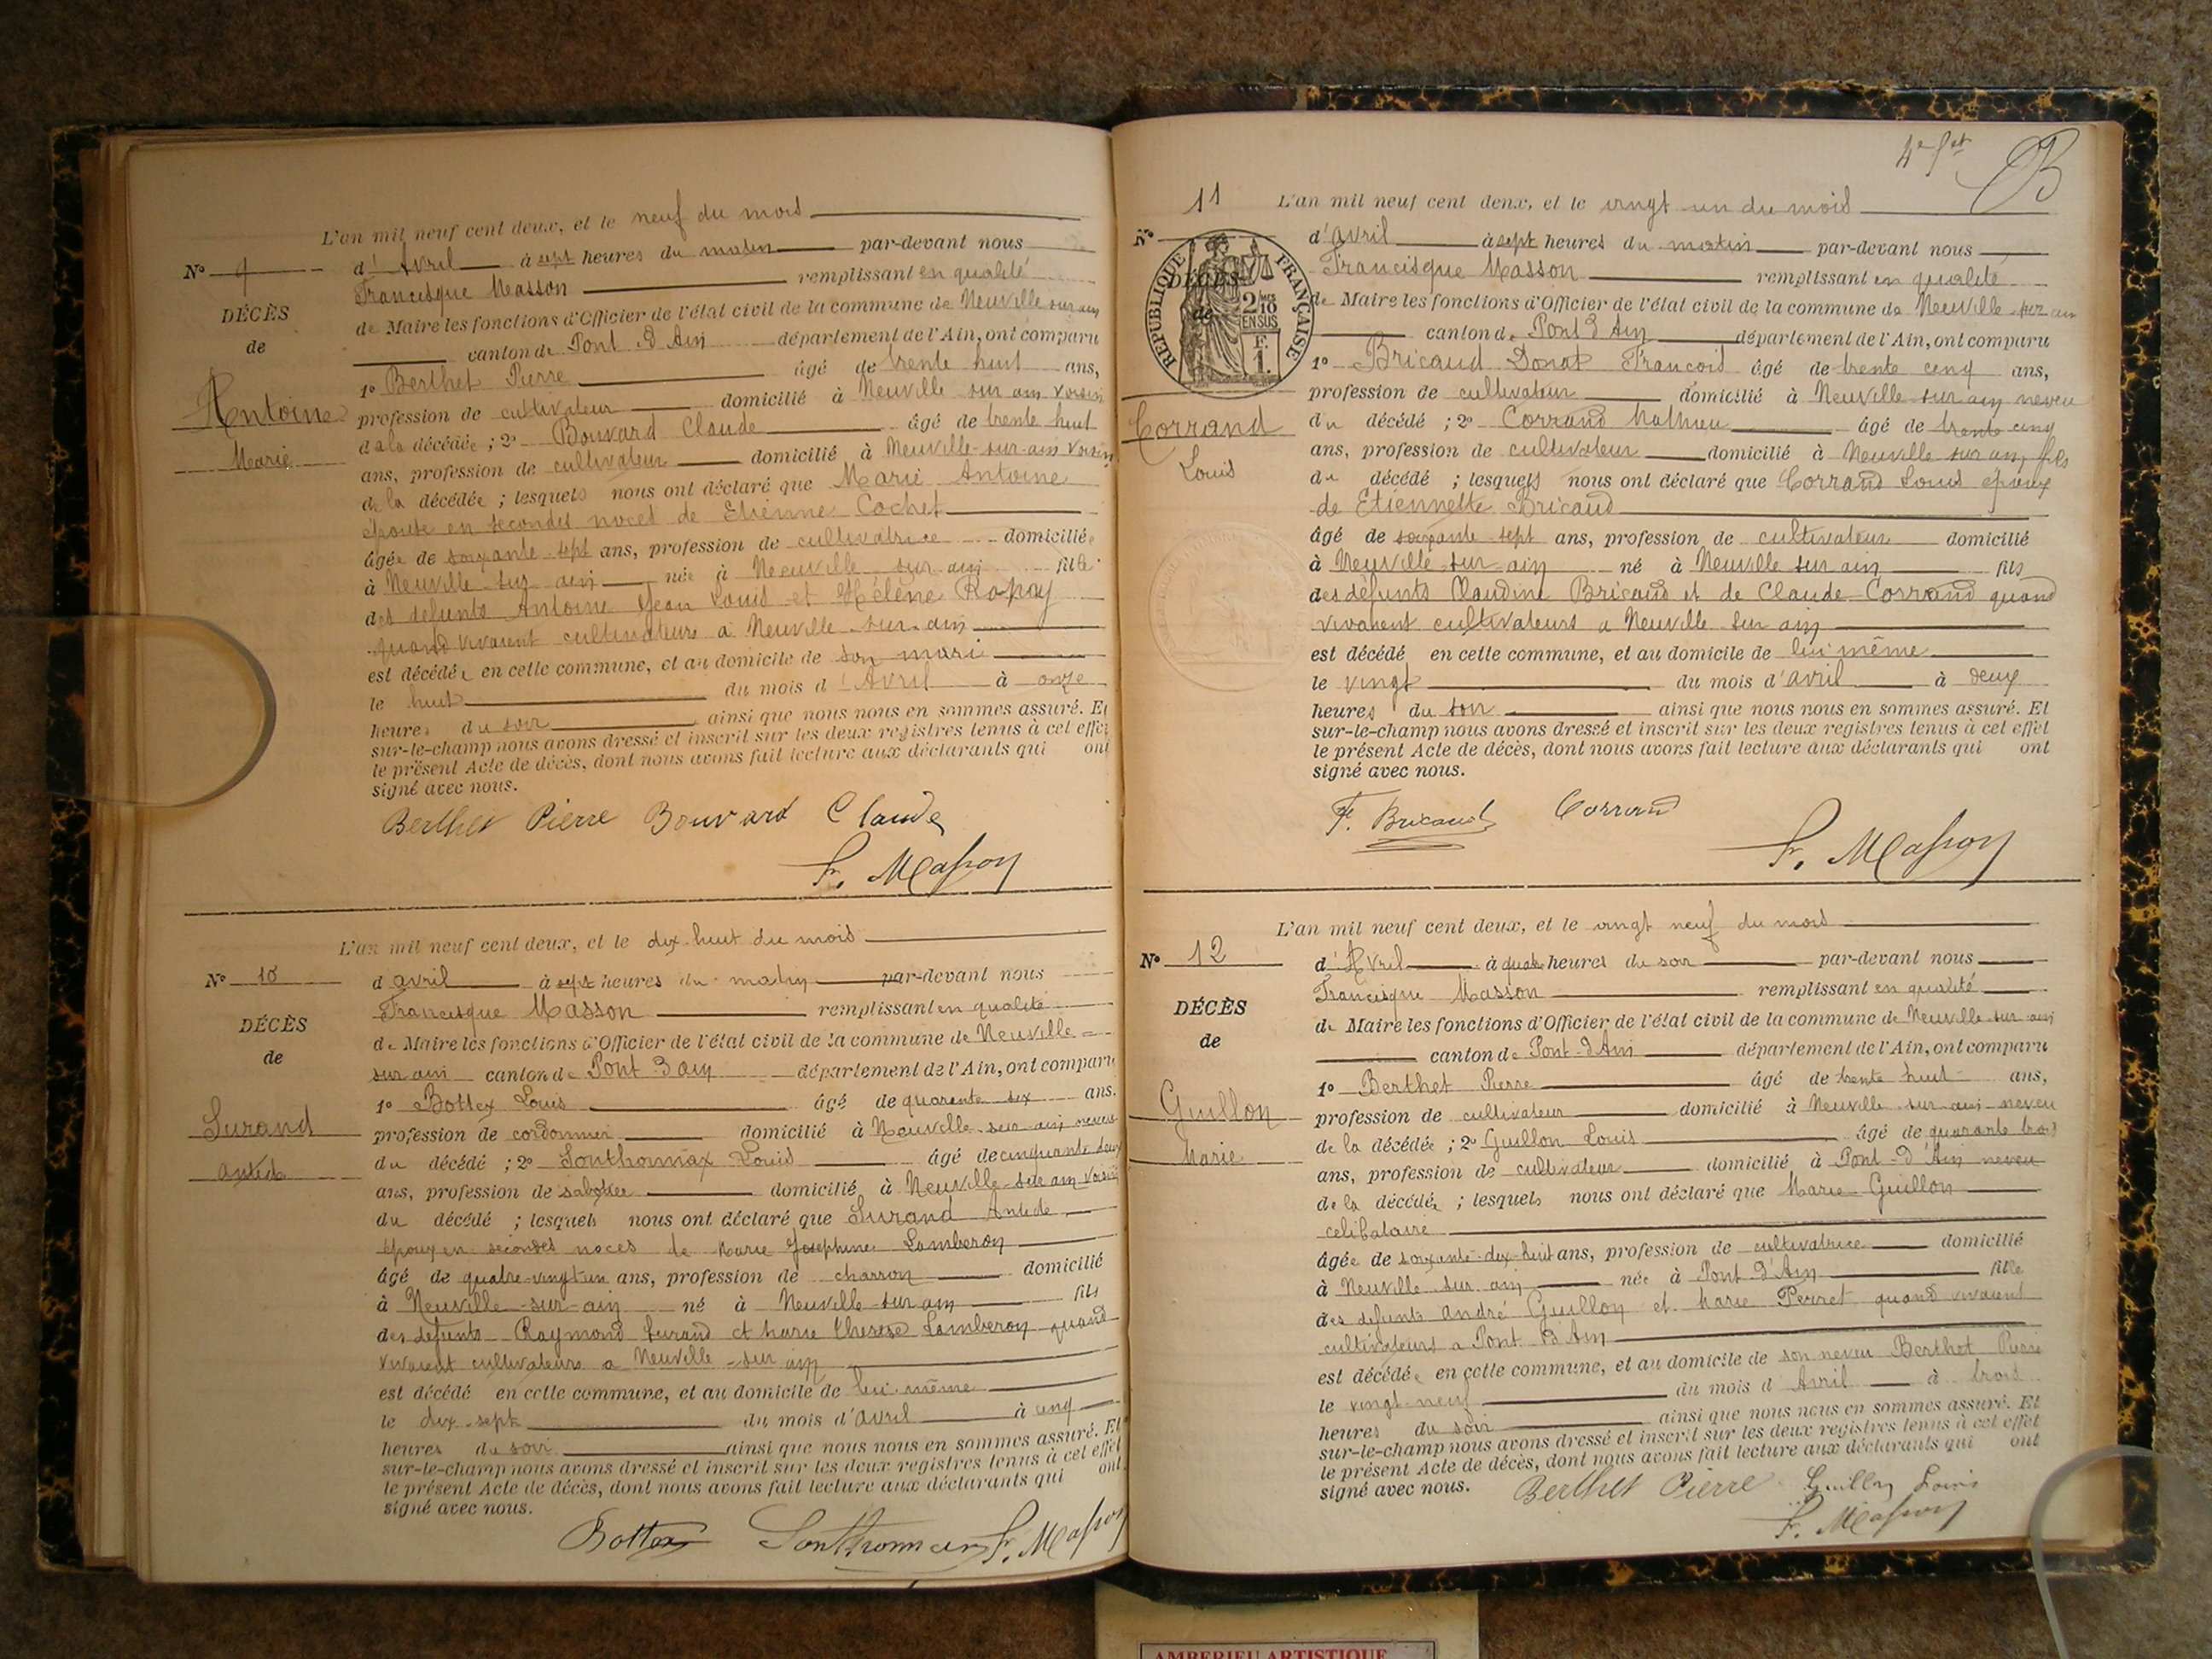 L'an mil neuf cent deux, et le neuf du mois
N° 9
d'Avril à sept heures du matin par-devant nous
Francisque Masson remplissant en qualité
DÉCÈS
de Maire les fonctions d'Officier de l'état civil de la commune de Neuville sur ain
de
canton de Pont d'Ain département de l'Ain, ont comparu
1° Berthet Pierre âgé de trente huit ans,
Antoine
profession de cultivateur domicilié à Neuville sur ain voisin
de la décédée ; 2° Bouvard Claude âgé de trente huit
Marie
ans, profession de cultivateur domicilié à Neuville-sur-ain voisin
de la décédée ; lesquels nous ont déclaré que Marie Antoine
épouse en secondes noces de Etienne Cochet
âgée de soixante-sept ans, profession de cultivatrice domiciliée
à Neuville sur ain née à Neuville sur ain fille
des défunts Antoine Jean Louis et Hélène
quand vivaient cultivateurs à Neuville-sur-ain
est décédée en cette commune, et au domicile de son mari
le huit du mois d'Avril à onze
heures du soir ainsi que nous nous en sommes assuré. Et
sur-le-champ nous avons dressé et inscrit sur les deux registres tenus à cet effet
le présent Acte de décès, dont nous avons fait lecture aux déclarants qui ont
signé avec nous.
Berthet Pierre Bouvard Claude
Fr. Masson
L'an mil neuf cent deux, et le dix-huit du mois
N° 10
d'avril à sept heures du matin par-devant nous
Francisque Masson remplissant en qualité
DÉCÈS
de Maire les fonctions d'Officier de l'état civil de la commune de Neuville-
de
sur ain canton de Pont d'ain département de l'Ain, ont comparu
1° Bottex Louis âgé de quarante six ans.
Surand
profession de cordonnier domicilié à Neuville sur ain neveu
du décédé ; 2° Sonthonnax Louis âgé de cinquante deux
Antide
ans, profession de sabotier domicilié à Neuville-sur ain voisin
du décédé ; lesquels nous ont déclaré que Surand Antide
époux en secondes noces de Marie Josephine Lamberon
âgé de quatre-vingt-un ans, profession de charron domicilié
à Neuville-sur-ain né à Neuville-sur ain fils
des défunts Raymond Surand et Marie Therese Lamberon quand
vivaient cultivateurs a Neuville-sur ain
est décédé en cette commune, et au domicile de lui-même
le dix-sept du mois d'avril à cinq
heures du soir ainsi que nous nous en sommes assuré. Et
sur-le-champ nous avons dressé et inscrit sur les deux registres tenus à cet effet
le présent Acte de décès, dont nous avons fait lecture aux déclarants qui ont
signé avec nous.
Bottex Sonthonnax Fr. Masson
4e
11
L'an mil neuf cent deux, et le vingt un du mois
N°
d'avril à sept heures du matin par-devant nous
RÉPUBLIQUE FRANÇAISE
2/10 EN SUS
F. 1.
DÉCÈS
de
Francisque Masson remplissant en qualité
de Maire les fonctions d'Officier de l'état civil de la commune de Neuville sur ain
canton de Pont d'Ain département de l'Ain, ont comparu
1° Bricaud Donat François âgé de trente cinq ans,
profession de cultivateur domicilié à Neuville sur ain neveu
Corrand
du décédé ; 2° Corrand Mathieu âgé de trente cinq
ans, profession de cultivateur domicilié à Neuville sur ain, fils
Louis
du décédé ; lesquels nous ont déclaré que Corrand Louis époux
de Etiennette Bricaud
âgé de soixante sept ans, profession de cultivateur domicilié
à Neuville sur ain né à Neuville sur ain fils
des défunts Claudine Bricaud et de Claude Corrand quand
vivaient cultivateurs a Neuville sur ain
est décédé en cette commune, et au domicile de lui même
le vingt du mois d'avril à deux
heures du soir ainsi que nous nous en sommes assuré. Et
sur-le-champ nous avons dressé et inscrit sur les deux registres tenus à cet effet
le présent Acte de décès, dont nous avons fait lecture aux déclarants qui ont
signé avec nous.
F. Bricaud Corrand
Fr. Masson
L'an mil neuf cent deux, et le vingt neuf du mois
N° 12
d'Avril à quatre heures du soir par-devant nous
Francisque Masson remplissant en qualité
DÉCÈS
de Maire les fonctions d'Officier de l'état civil de la commune de Neuville-sur-ain
de
canton de Pont-d'Ain département de l'Ain, ont comparu
1° Berthet Pierre âgé de trente huit ans,
Guillon
profession de cultivateur domicilié à Neuville sur ain neveu
de la décédée ; 2° Guillon Louis âgé de quarante trois
Marie
ans, profession de cultivateur domicilié à Pont-d'Ain neveu
de la décédée ; lesquels nous ont déclaré que Marie Guillon
celibataire
âgée de soixante-dix-huit ans, profession de cultivatrice domicilié
à Neuville sur ain née à Pont d'Ain fille
des défunts André Guillon et Marie Perret quand vivaient
cultivateurs a Pont d'Ain
est décédée en cette commune, et au domicile de son neveu Berthet Pierre
le vingt-neuf du mois d'Avril à trois
heures du soir ainsi que nous nous en sommes assuré. Et
sur-le-champ nous avons dressé et inscrit sur les deux registres tenus à cet effet
le présent Acte de décès, dont nous avons fait lecture aux déclarants qui ont
signé avec nous. Berthet Pierre Guillon Louis
Fr. Masson
AMBERIEU ARTISTIQUE